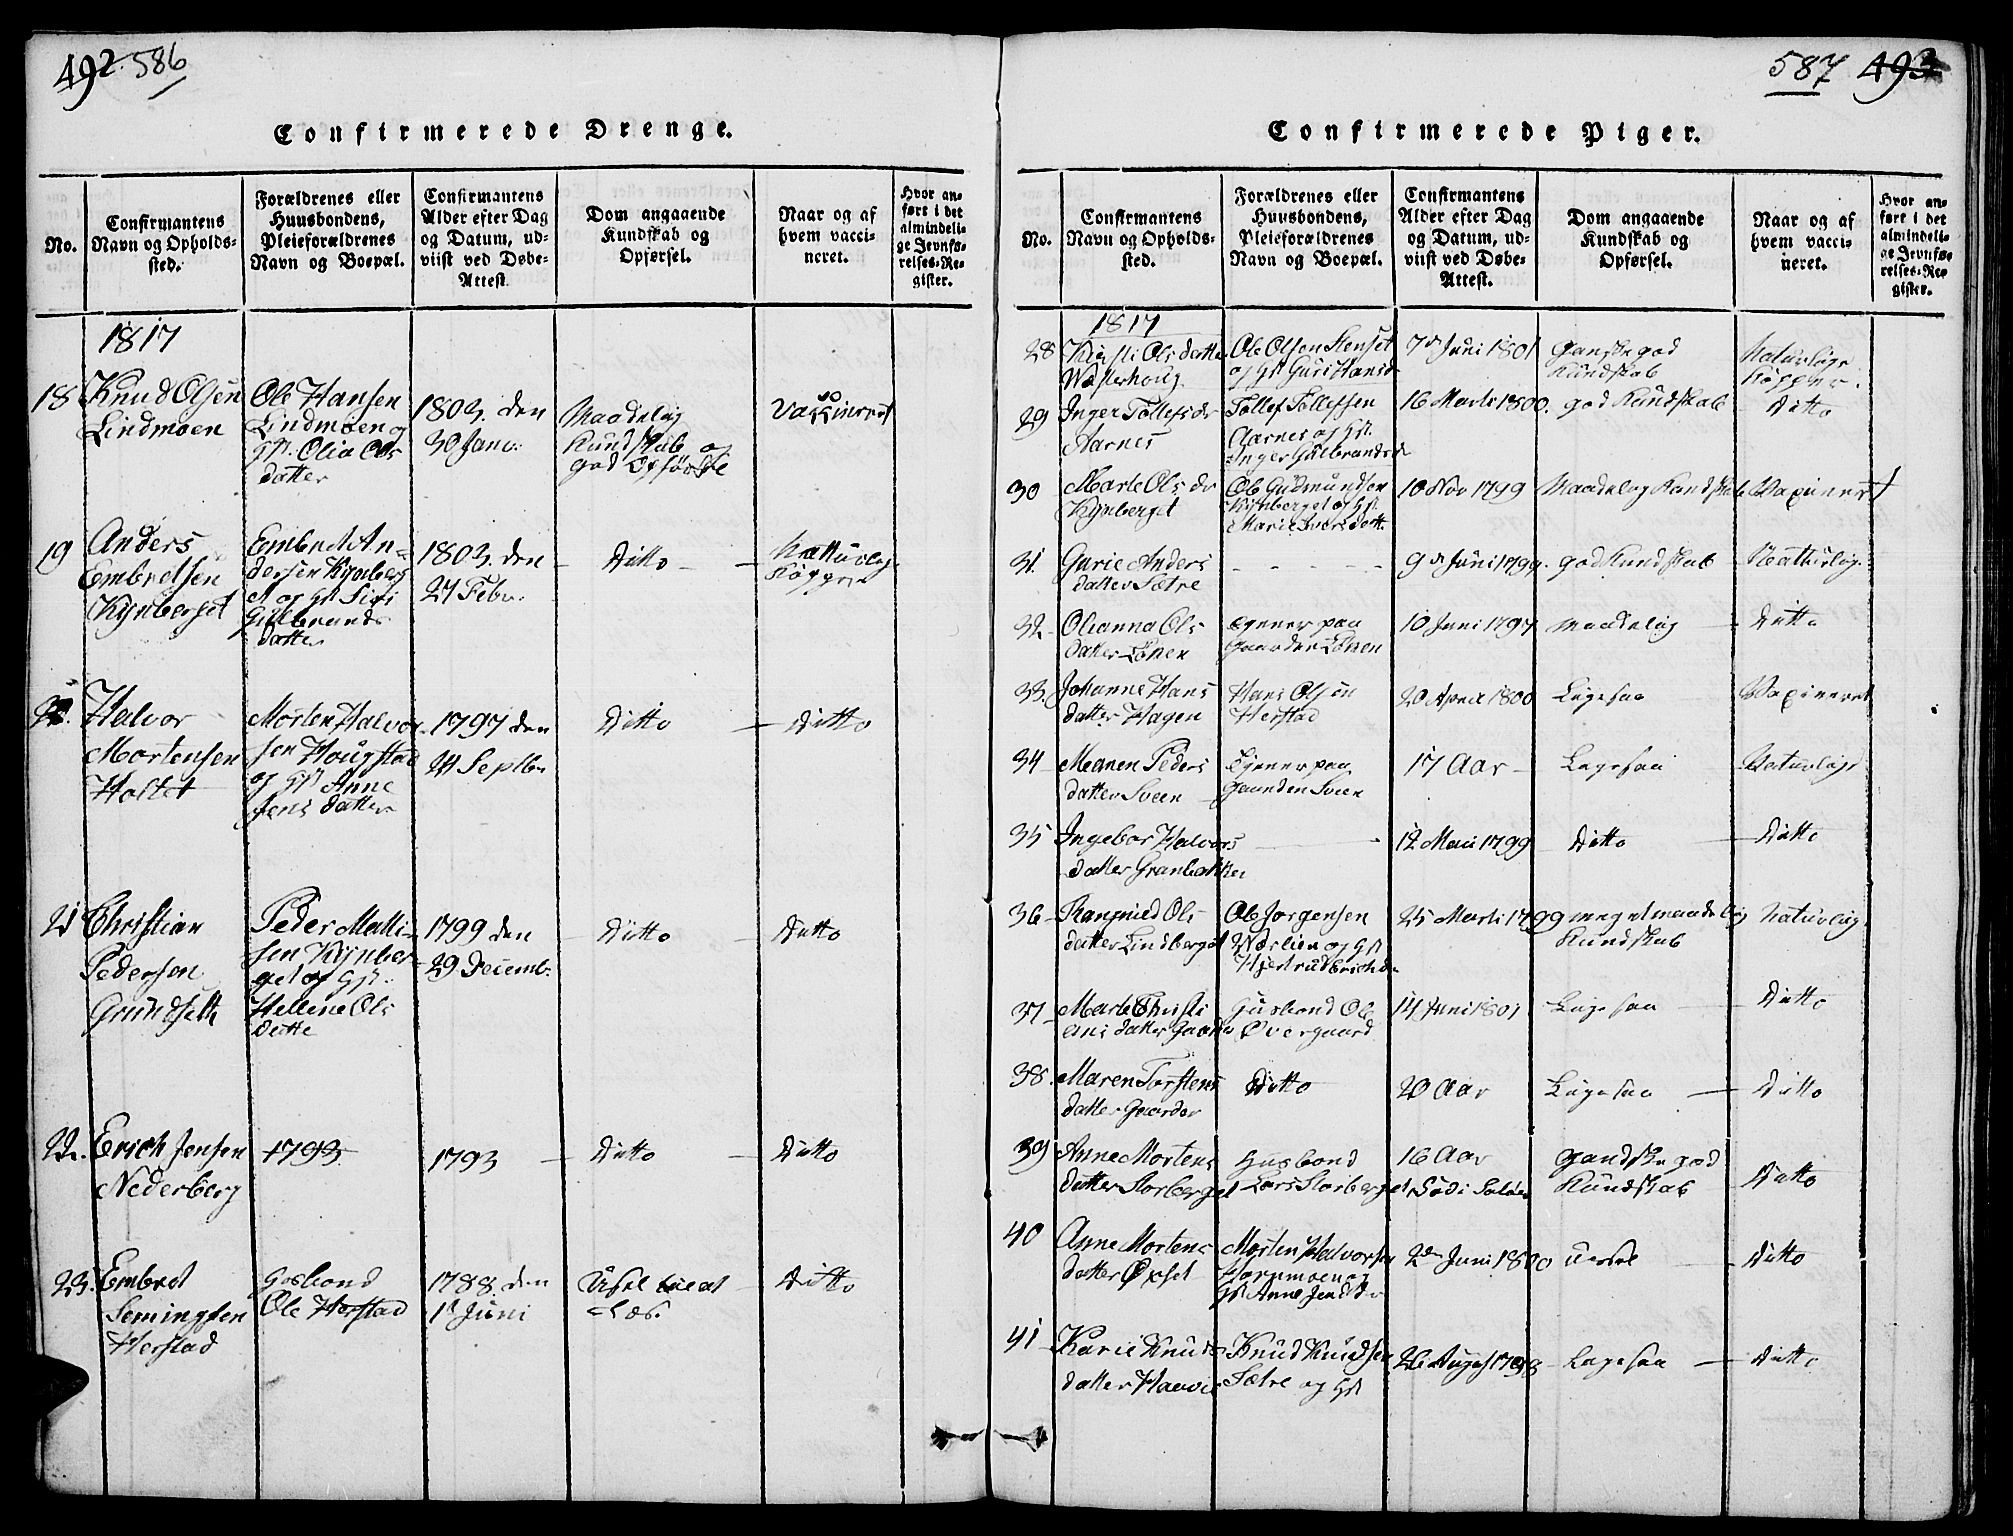 492. 586
Confirmerede Drenge.
No.
Confirmantens Navn og Opholds-sted.
Forældrenes eller Huusbondens, Pleieforældrenes Navn og Boepæl.
Confirmantens Alder efter Dag og Datum, ud-viist ved Døbe-Attest.
Dom angaaende Kundskab og Opførsel.
Naar og af hvem vacci-neret.
Hvor an-ført i det almindeli-ge Jevnfø-relses-Re-gister.
1817
18 Knud Olsen
Lindmoen
Ole Hansen
Lindmoen og
Hst. Olia Ols
datter
1803 den
30 Janu:
Maadelig
Kundskab og
god Opførsle
Vaxsineret
19 Anders
Embretsen
Kynberget
Embret An-
dersen Kynberg
et og Hst Siri
Gulbrands
datter
1803 den
27 Febr.
Ditto
Natturlig
Kopper
Halvor
Mortensen
Holtet
Morten Halvor
sen Hougstad
og Hst Anne
Jens datter
1797 den
24 Septbr
Ditto
Ditto
21 Christian
Pedersen
Grundseth
Peder Matti-
sen Kynber
get og Hst.
Hellene Ols
datte
1799 den
29 Decemb.
Ditto
Ditto
22. Erich Jensen
Nederberg
1793
1793
Ditto
Ditto
23. Embret
Semingsen
Herstad
Gosbond
Ole Herstad
1788 den
1st Juni
Usel til at
Læs.
Ditto
587 493
Confirmerede Piger.
No.
Confirmantens Navn og Opholds-sted.
Forældrenes eller Huusbondens, Pleieforældrenes Navn og Boepæl.
Confirmantens Alder efter Dag og Datum, ud-viist ved Døbe-Attest.
Dom angaaende Kundskab og Opførsel.
Naar og af hvem vacci-neret.
Hvor an-ført i det almindeli-ge Jevnfø-relses-Re-gister.
1817
28 Kirsti Ols datte
Westerhoug
Ole Olsen Stenset
og Hst Guri Hansd
7de Juni 1801
Ganske god
Kundskab
Naturlige
Kopper.
29 Inger Tollefs dr
Aarnes
Tollef Tollefsen
Aarnes og Hst.
Inger Gulbrandsd
16 Marts 1800.
god Kundskab
Ditto
30 Marte Ols dr
Kynberget
Ole Gudmundsen
Kynberget og Hst
Marie Iversdatt.
10 Nov 1799
Maadelig Kundskab
Vaxineret
31. Gurie Anders
datter Sætre
9de Juni 1799.
god Kundskab
Nathurlig
32 Olianna Ols
datter Lønen
tjener paa
gaarden Lønen
10 Juni 1797
maadelig
Ditto
33. Johanne Hans
datter Hagen
Hans Olsen
Herstad
20 April 1800
Ligesaa
Vaxineret
34 Maren Peders
datter Sveen
tjener paa
gaarden Sveen
17 Aar
Ligesaa
Naturlige
35 Ingebor Halvors
datter Granbakken
12 Mai 1799
Ditto
Ditto
36 Rangnied Ols
datter Lindberget
Ole Jorgensen
Værlien og Hst
Hjertrud Erichdr
25 Marts 1799
meget maadelig
Kundskab
Naturlig
37 Marte Christi
ans datter Gaarder
Gusbond Ole
Overgaard
14 Juni 1801
Ligesaa
Ditto
38. Maren Torstens
datter Gaarder
Ditto
20 Aar
Ligesaa
Ditto
39 Anne Mortens
datter Storberget
Husbond
Lars Storberget
16 Aar
Født i Soløer
gandske god
Kundskab
Ditto
40 Anne Mortens
datter Øxset
Morten Halvorsen
Hornmoen og
Hst Anne Jensdr
2den Juni 1800
Ditto
41 Karie Knuds
datter Haavie
Knud Knudsen
Sætre og Hst
26 August 1798
Ligesaa
Ditto